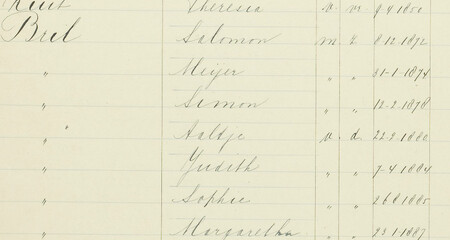 Theresia v. vr.
Bril Salomon m z. 8.12.1872
" Meijer " " 31-1-1874
" Simon " " 12-2-1878
" " Aaltje v. d. 22.9.1880
" Judith " " 7-4-1884
" Sophie " " 26.8.1885
" Margaretha " " 23.1.1887